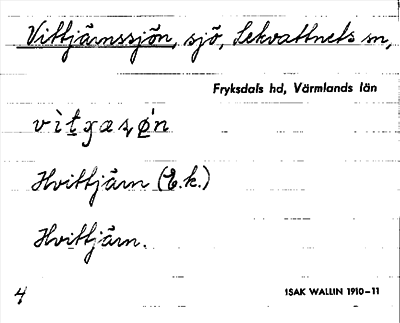 Vittjärnssjön, sjö, Lekvattnets sn,
Fryksdals hd, Värmlands län
Hvittjärn (E.k.)
Hvittjärn.
4
ISAK WALLIN 1910–11